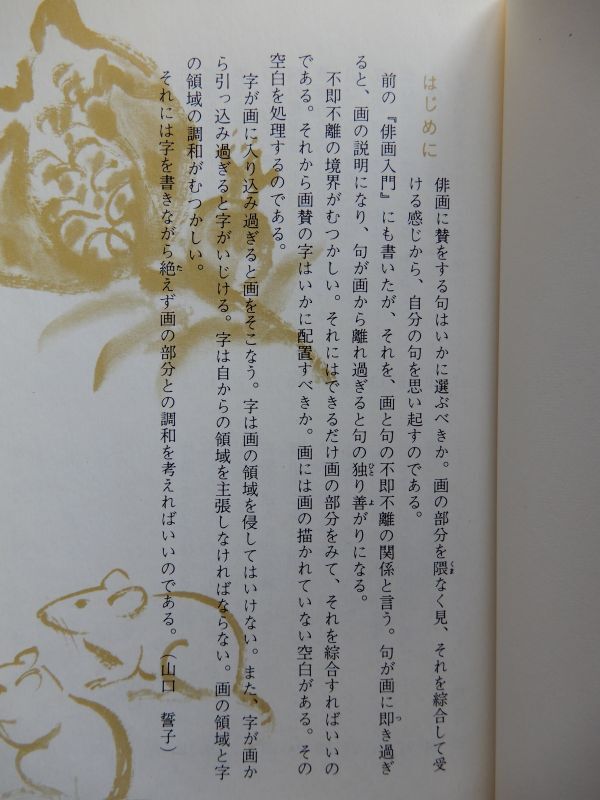 はじめに
俳画に賛をする句はいかに選ぶべきか。画の部分を隈なく見、それを綜合して受
ける感じから、自分の句を思い起すのである。
前の『俳画入門』にも書いたが、それを、画と句の不即不離の関係と言う。句が画に即き過ぎ
ると、画の説明になり、句が画から離れ過ぎると句の独り善がりになる。
不即不離の境界がむつかしい。それにはできるだけ画の部分をみて、それを綜合すればいいの
である。それから画賛の字はいかに配置すべきか。画には画の描かれていない空白がある。その
空白を処理するのである。
字が画に入り込み過ぎると画をそこなう。字は画の領域を侵してはいけない。また、字が画か
ら引っ込み過ぎると字がいじける。字は自からの領域を主張しなければならない。画の領域と字
の領域の調和がむつかしい。
それには字を書きながら絶えず画の部分との調和を考えればいいのである。（山口　誓子）